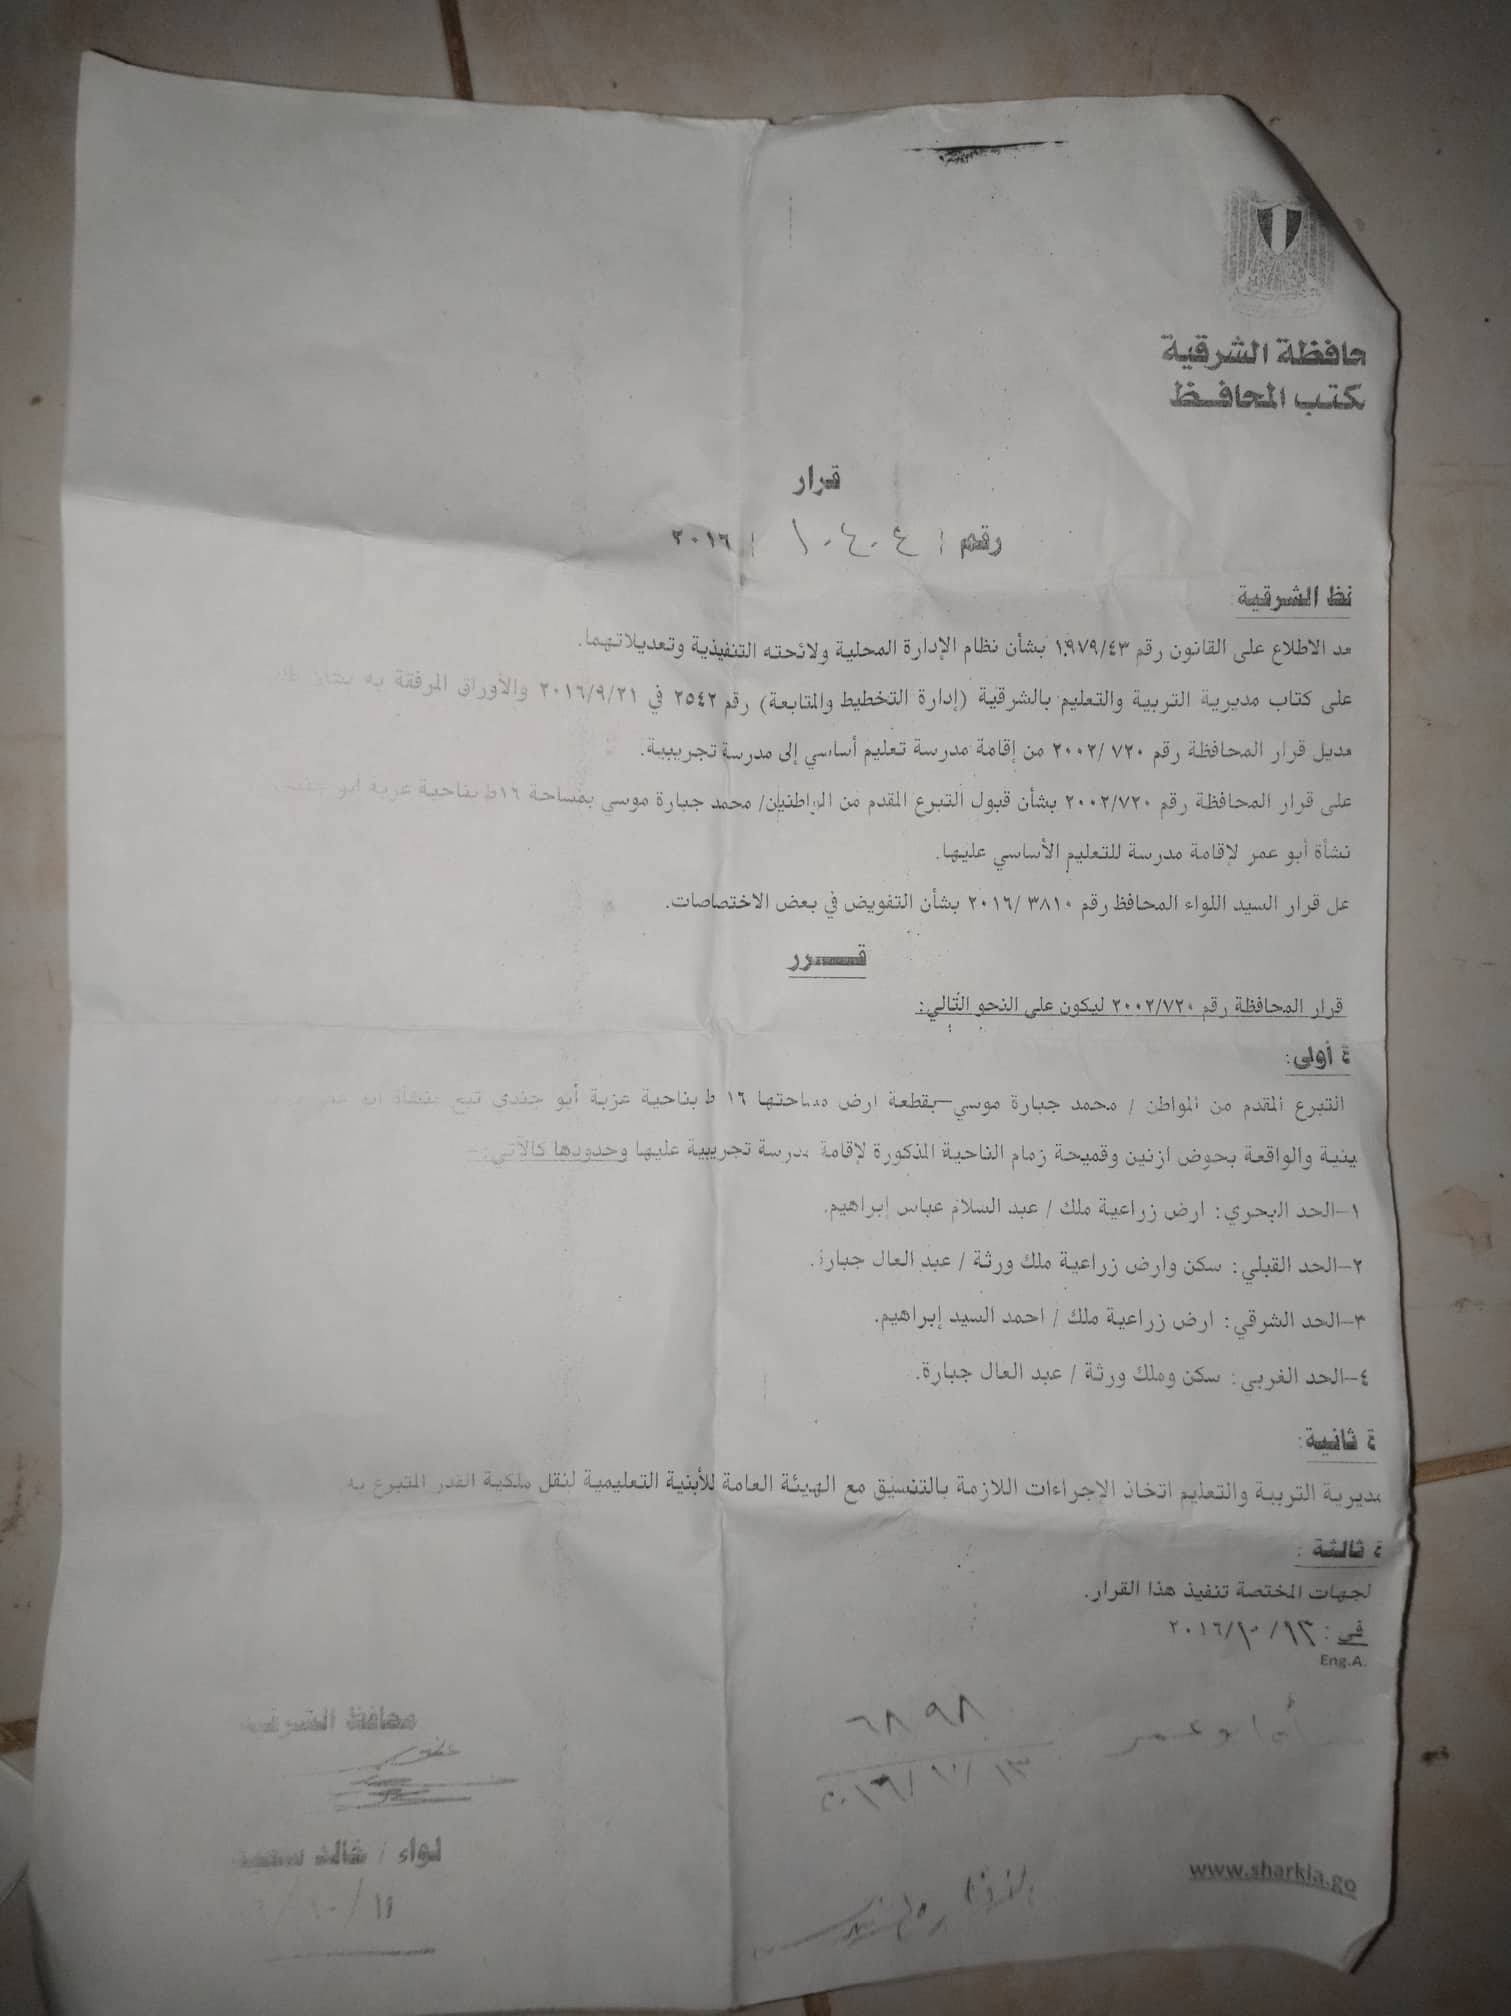 حافظة الشرقية
كتب المحافظ
قرار
رقم : ١٠٤٠٤ : ٢٠١٦
نظ الشرقية
عد الاطلاع على القانون رقم ١٩٧٩/٤٣ بشأن نظام الإدارة المحلية ولائحته التنفيذية وتعديلاتهما.
على كتاب مديرية التربية والتعليم بالشرقية (إدارة التخطيط والمتابعة) رقم ٢٥٤٢ في ٢٠١٦/٩/٢١ والأوراق المرفقة به بشأن
عديل قرار المحافظة رقم ٧٢٠ /٢٠٠٢ من إقامة مدرسة تعليم أساسي إلى مدرسة تجريبية.
على قرار المحافظة رقم ٢٠٠٢/٧٢٠ بشأن قبول التبرع المقدم من المواطنين/ محمد جبارة موسي بمساحة ١٦ط بناحية عزبة أبو
نشأة أبو عمر لإقامة مدرسة للتعليم الأساسي عليها.
عل قرار السيد اللواء المحافظ رقم ٣٨١٠ /٢٠١٦ بشأن التفويض في بعض الاختصاصات.
قـــرر
قرار المحافظة رقم ٢٠٠٢/٧٢٠ ليكون على النحو التالي:
ة أولى:
التبرع المقدم من المواطن / محمد جبارة موسي–بقطعة ارض مساحتها ١٦ ط بناحية عزبة أبو جندي تبع منشأة أبو عمر
ينية والواقعة بحوض ازنين وقميحة زمام الناحية المذكورة لإقامة مدرسة تجريبية عليها وحدودها كالآتي:-
١–الحد البحري: ارض زراعية ملك / عبد السلام عباس إبراهيم.
٢–الحد القبلي: سكن وارض زراعية ملك ورثة / عبد العال جبارة.
٣–الحد الشرقي: ارض زراعية ملك / احمد السيد إبراهيم.
٤–الحد الغربي: سكن وملك ورثة / عبد العال جبارة.
ة ثانية:
مديرية التربية والتعليم اتخاذ الإجراءات اللازمة بالتنسيق مع الهيئة العامة للأبنية التعليمية لنقل ملكية القدر المتبرع به
ة ثالثة :
لجهات المختصة تنفيذ هذا القرار.
في : ١٣/ ١٠/ ٢٠١٦
Eng.A.
محافظ الشرقية
٦٨٩٨
٢٠١٦/١٠/١٣
لواء / خالد سعيد
www.sharkia.go